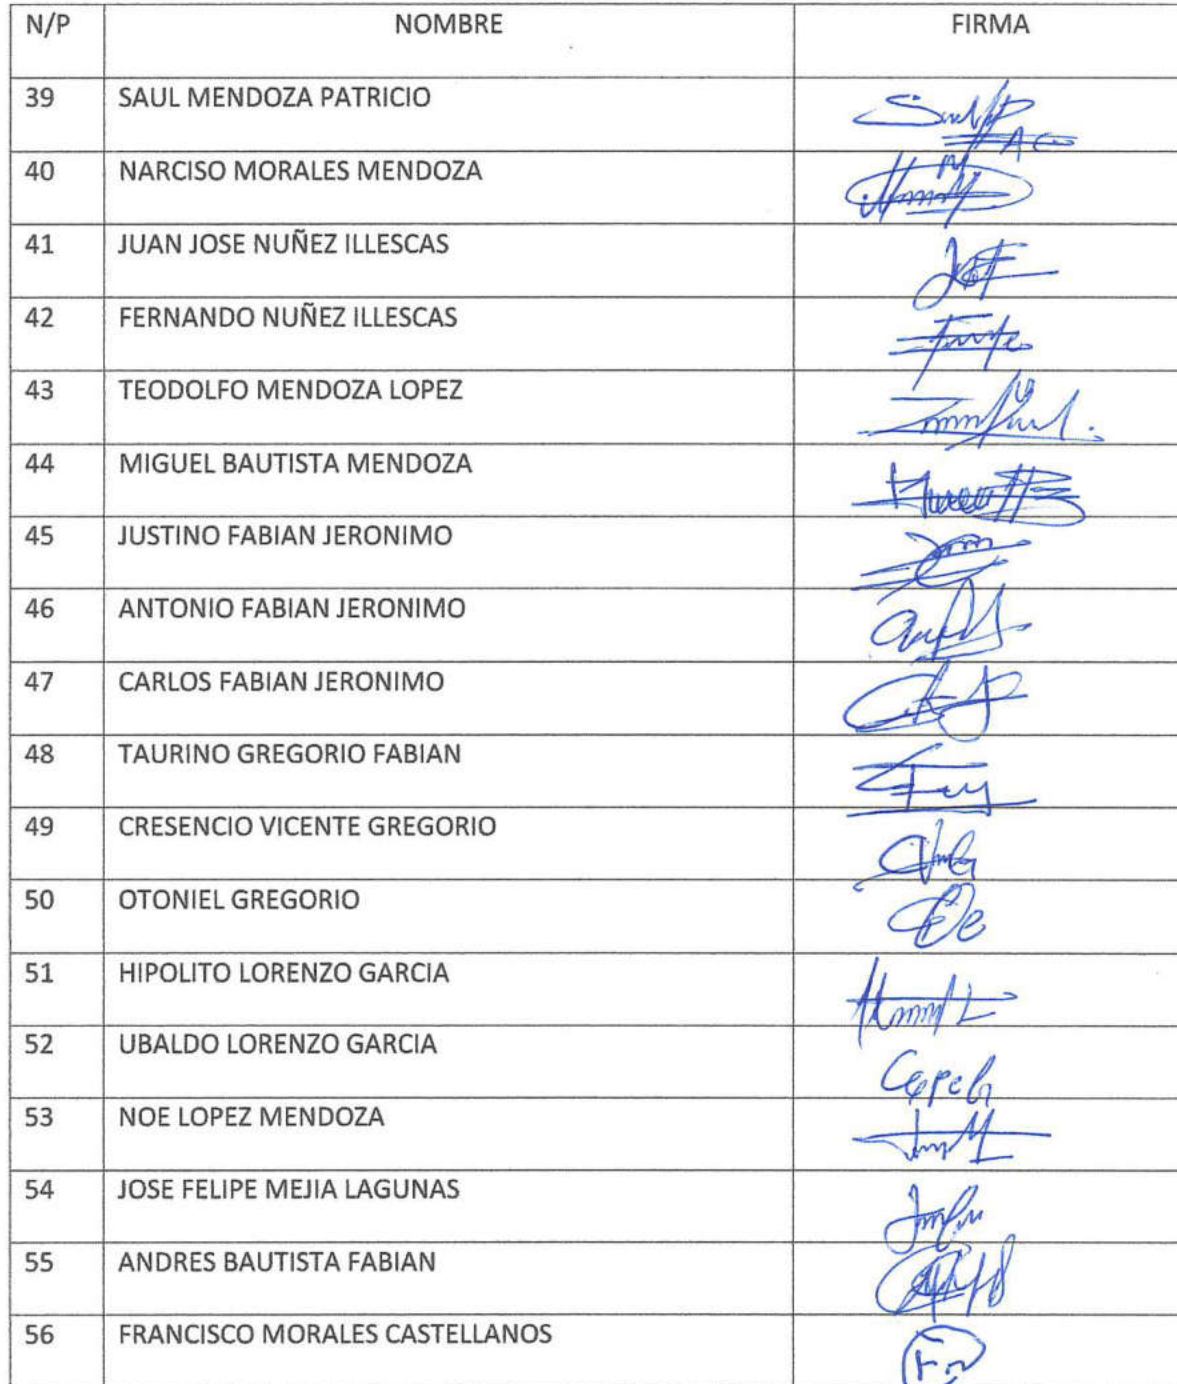 N/P NOMBRE FIRMA
39 SAUL MENDOZA PATRICIO
40 NARCISO MORALES MENDOZA
41 JUAN JOSE NUÑEZ ILLESCAS
42 FERNANDO NUÑEZ ILLESCAS
43 TEODOLFO MENDOZA LOPEZ
44 MIGUEL BAUTISTA MENDOZA
45 JUSTINO FABIAN JERONIMO
46 ANTONIO FABIAN JERONIMO
47 CARLOS FABIAN JERONIMO
48 TAURINO GREGORIO FABIAN
49 CRESENCIO VICENTE GREGORIO
50 OTONIEL GREGORIO
51 HIPOLITO LORENZO GARCIA
52 UBALDO LORENZO GARCIA
53 NOE LOPEZ MENDOZA
54 JOSE FELIPE MEJIA LAGUNAS
55 ANDRES BAUTISTA FABIAN
56 FRANCISCO MORALES CASTELLANOS